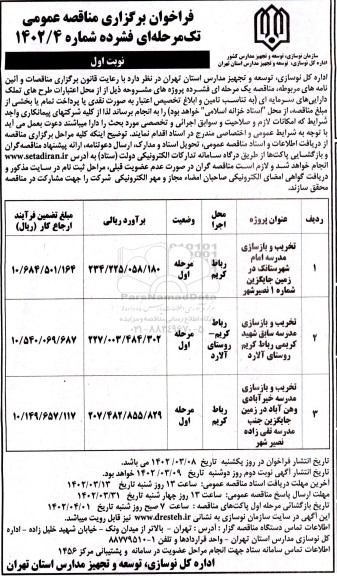 فراخوان برگزاری مناقصه عمومی
تک‌مرحله‌ای فشرده شماره ۱۴۰۲/۴
سازمان نوسازی، توسعه و تجهیز مدارس کشور
اداره کل نوسازی، توسعه و تجهیز مدارس استان تهران
نوبت اول
اداره کل نوسازی، توسعه و تجهیز مدارس استان تهران در نظر دارد با رعایت قانون برگزاری مناقصات و آئین
نامه های مربوطه، مناقصه یک مرحله ای فشرده پروژه های مشروحه ذیل از محل اعتبارات طرح های تملک
دارایی‌های سرمایه ای (به تناسب تامین و ابلاغ تخصیص اعتبار به صورت نقدی یا پرداخت تمام یا بخشی از
مبلغ مناقصه، از محل "اسناد خزانه اسلامی" خواهد بود) را به انجام برساند لذا از کلیه شرکتهای پیمانکاری واجد
شرایط که امکانات لازم و صلاحیت و سوابق اجرائی و تخصصی مورد بحث را دارا میباشند دعوت بعمل می آید
با توجه به شرایط عمومی و اختصاصی مندرج در اسناد اقدام نمایند. توضیح اینکه کلیه مراحل برگزاری مناقصه
از دریافت اطلاعات و اسناد مناقصه عمومی، تحویل اسناد و مدارک، ارسال دعوتنامه، ارائه پیشنهاد مناقصه‌گران
و بازگشایی پاکت‌ها از طریق درگاه سامانه تدارکات الکترونیکی دولت (ستاد) به آدرس www.setadiran.ir
انجام پذیرد و لازم است مناقصه گران در صورت عدم عضویت قبلی، مراحل ثبت نام در سایت مذکور و
دریافت گواهی امضای الکترونیکی صاحبان امضاء مجاز و مهر الکترونیکی شرکت را جهت مشارکت در مناقصه
محقق سازند.
ردیف عنوان پروژه محل اجرا وضعیت برآورد ریالی مبلغ تضمین فرآیند ارجاع کار (ریال)
۱ تخریب و بازسازی مدرسه امام شهرستانک در زمین جایگزین شماره ۱ نصیرشهر رباط کریم مرحله اول ۲۳۴/۲۲۵/۰۵۸/۱۸۰ ۱۰/۶۸۴/۵۰۱/۱۶۴
۲ تخریب و بازسازی مدرسه سابق شهید کریمی رباط کریم روستای آلارد رباط کریم- روستای آلارد مرحله اول ۲۲۷/۰۰۳/۴۸۴/۳۰۲ ۱۰/۵۴۰/۰۶۹/۶۸۷
۳ تخریب و بازسازی مدرسه خیرآبادی وهن آباد در زمین جایگزین جنب مدرسه تقی زاده نصیر شهر رباط کریم مرحله اول ۲۰۷/۴۸۲/۸۵۵/۸۲۹ ۱۰/۱۴۹/۶۵۷/۱۱۷
تاریخ انتشار فراخوان در روز یکشنبه تاریخ ۱۴۰۲/۰۳/۰۸ می باشد.
تاریخ انتشار آگهی نوبت دوم روز دوشنبه تاریخ ۱۴۰۲/۰۳/۰۹ خواهد بود.
آخرین مهلت دریافت اسناد مناقصه عمومی: ساعت ۱۳ روز شنبه تاریخ ۱۴۰۲/۰۳/۱۳
مهلت ارسال پاسخ مناقصه عمومی: ساعت ۱۳ روز چهار شنبه تاریخ ۱۴۰۲/۰۳/۳۱
تاریخ بازگشائی مرحله اول پاکت‌های مناقصه : ساعت ۷ صبح روز شنبه تاریخ ۱۴۰۲/۰۴/۰۱
این آگهی در سایت سازمان نوسازی به نشانی www.dresteh.ir نیز قابل رویت میباشد.
اطلاعات تماس دستگاه مناقصه گزار : آدرس : تهران - بالاتر از میدان ونک - خیابان شهید خلیل زاده - اداره
کل نوسازی مدارس استان تهران - واحد قراردادها و تلفن ۱-۸۸۷۷۹۵۱۰
اطلاعات تماس سامانه ستاد جهت انجام مراحل عضویت در سامانه و پشتیبانی مرکز ۱۴۵۶
اداره کل نوسازی، توسعه و تجهیز مدارس استان تهران